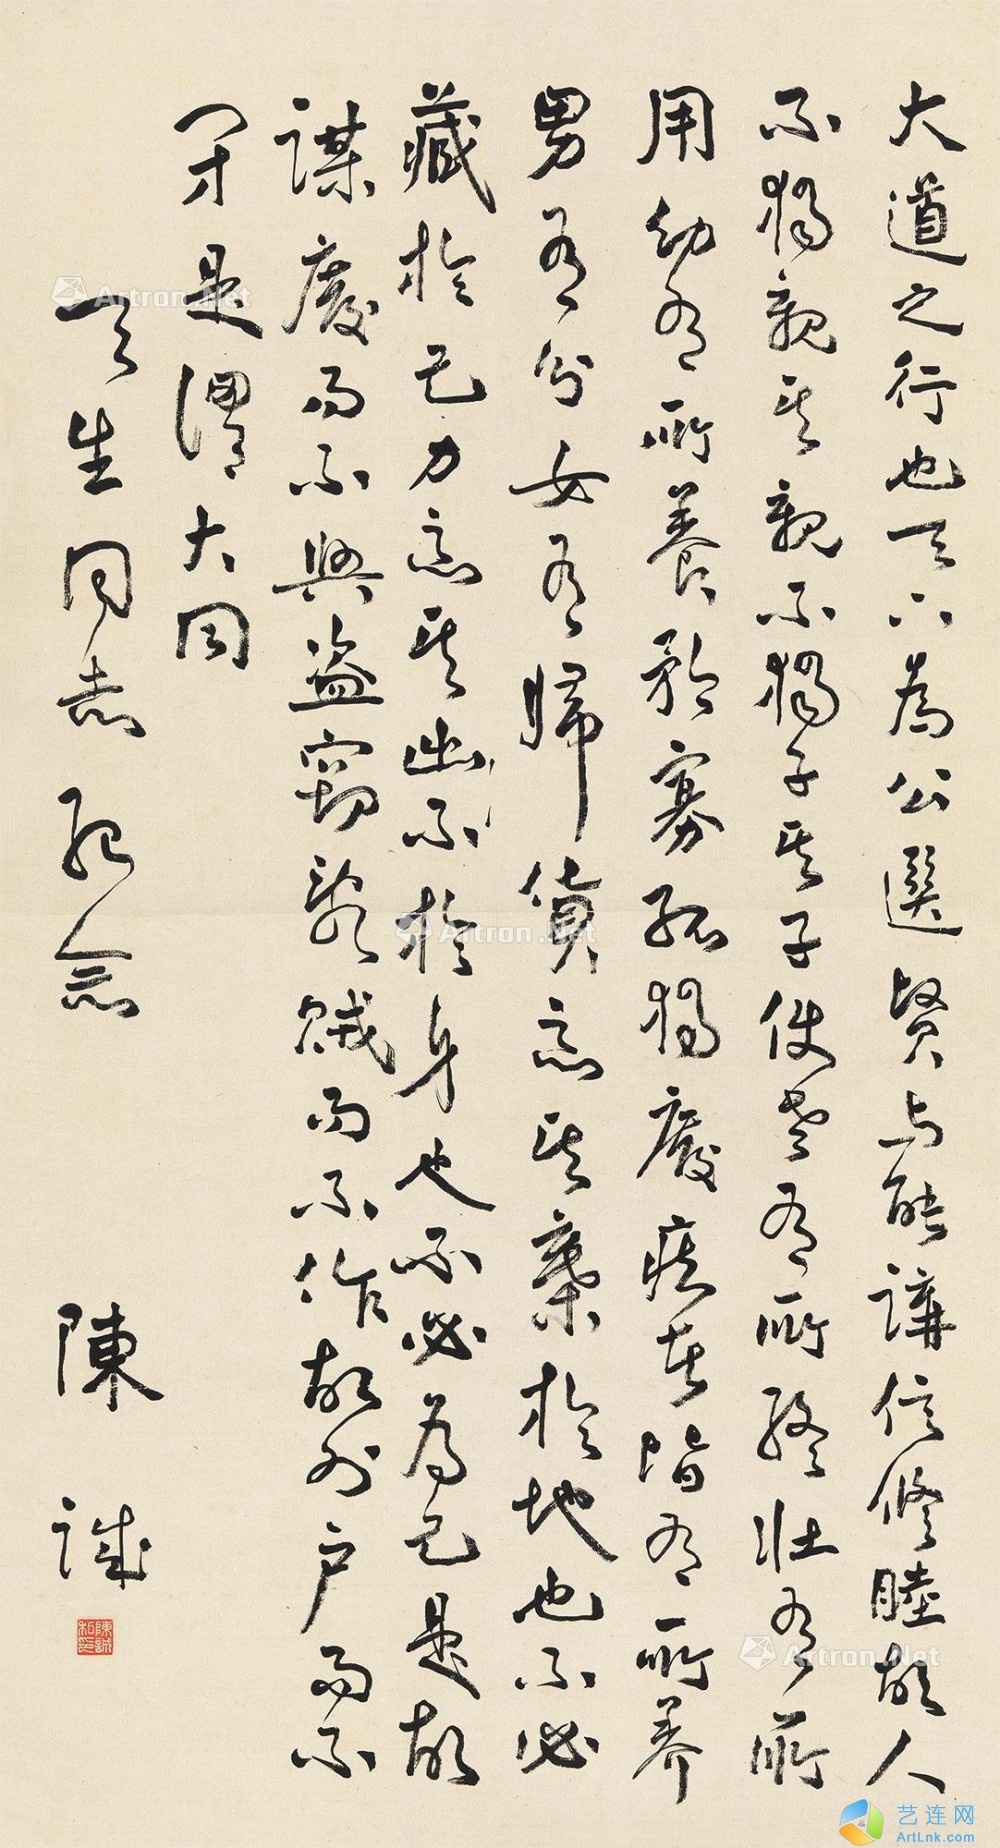 大道之行也天下為公選賢与能講信修睦故人
不獨親其親不獨子其子使老有所終壯有所
用幼有所養矜寡孤獨廢疾者皆有所養
男有分女有歸貨惡其棄於地也不必
藏於己力惡其出不於身也不必為己是故
謀廢而不興盜竊亂賊而不作故外户而不
閉是謂大同
天生同志紀念 陳誠
Artron.Net
Artron.Net
Artron.Net
艺连网
ArtLnk.com